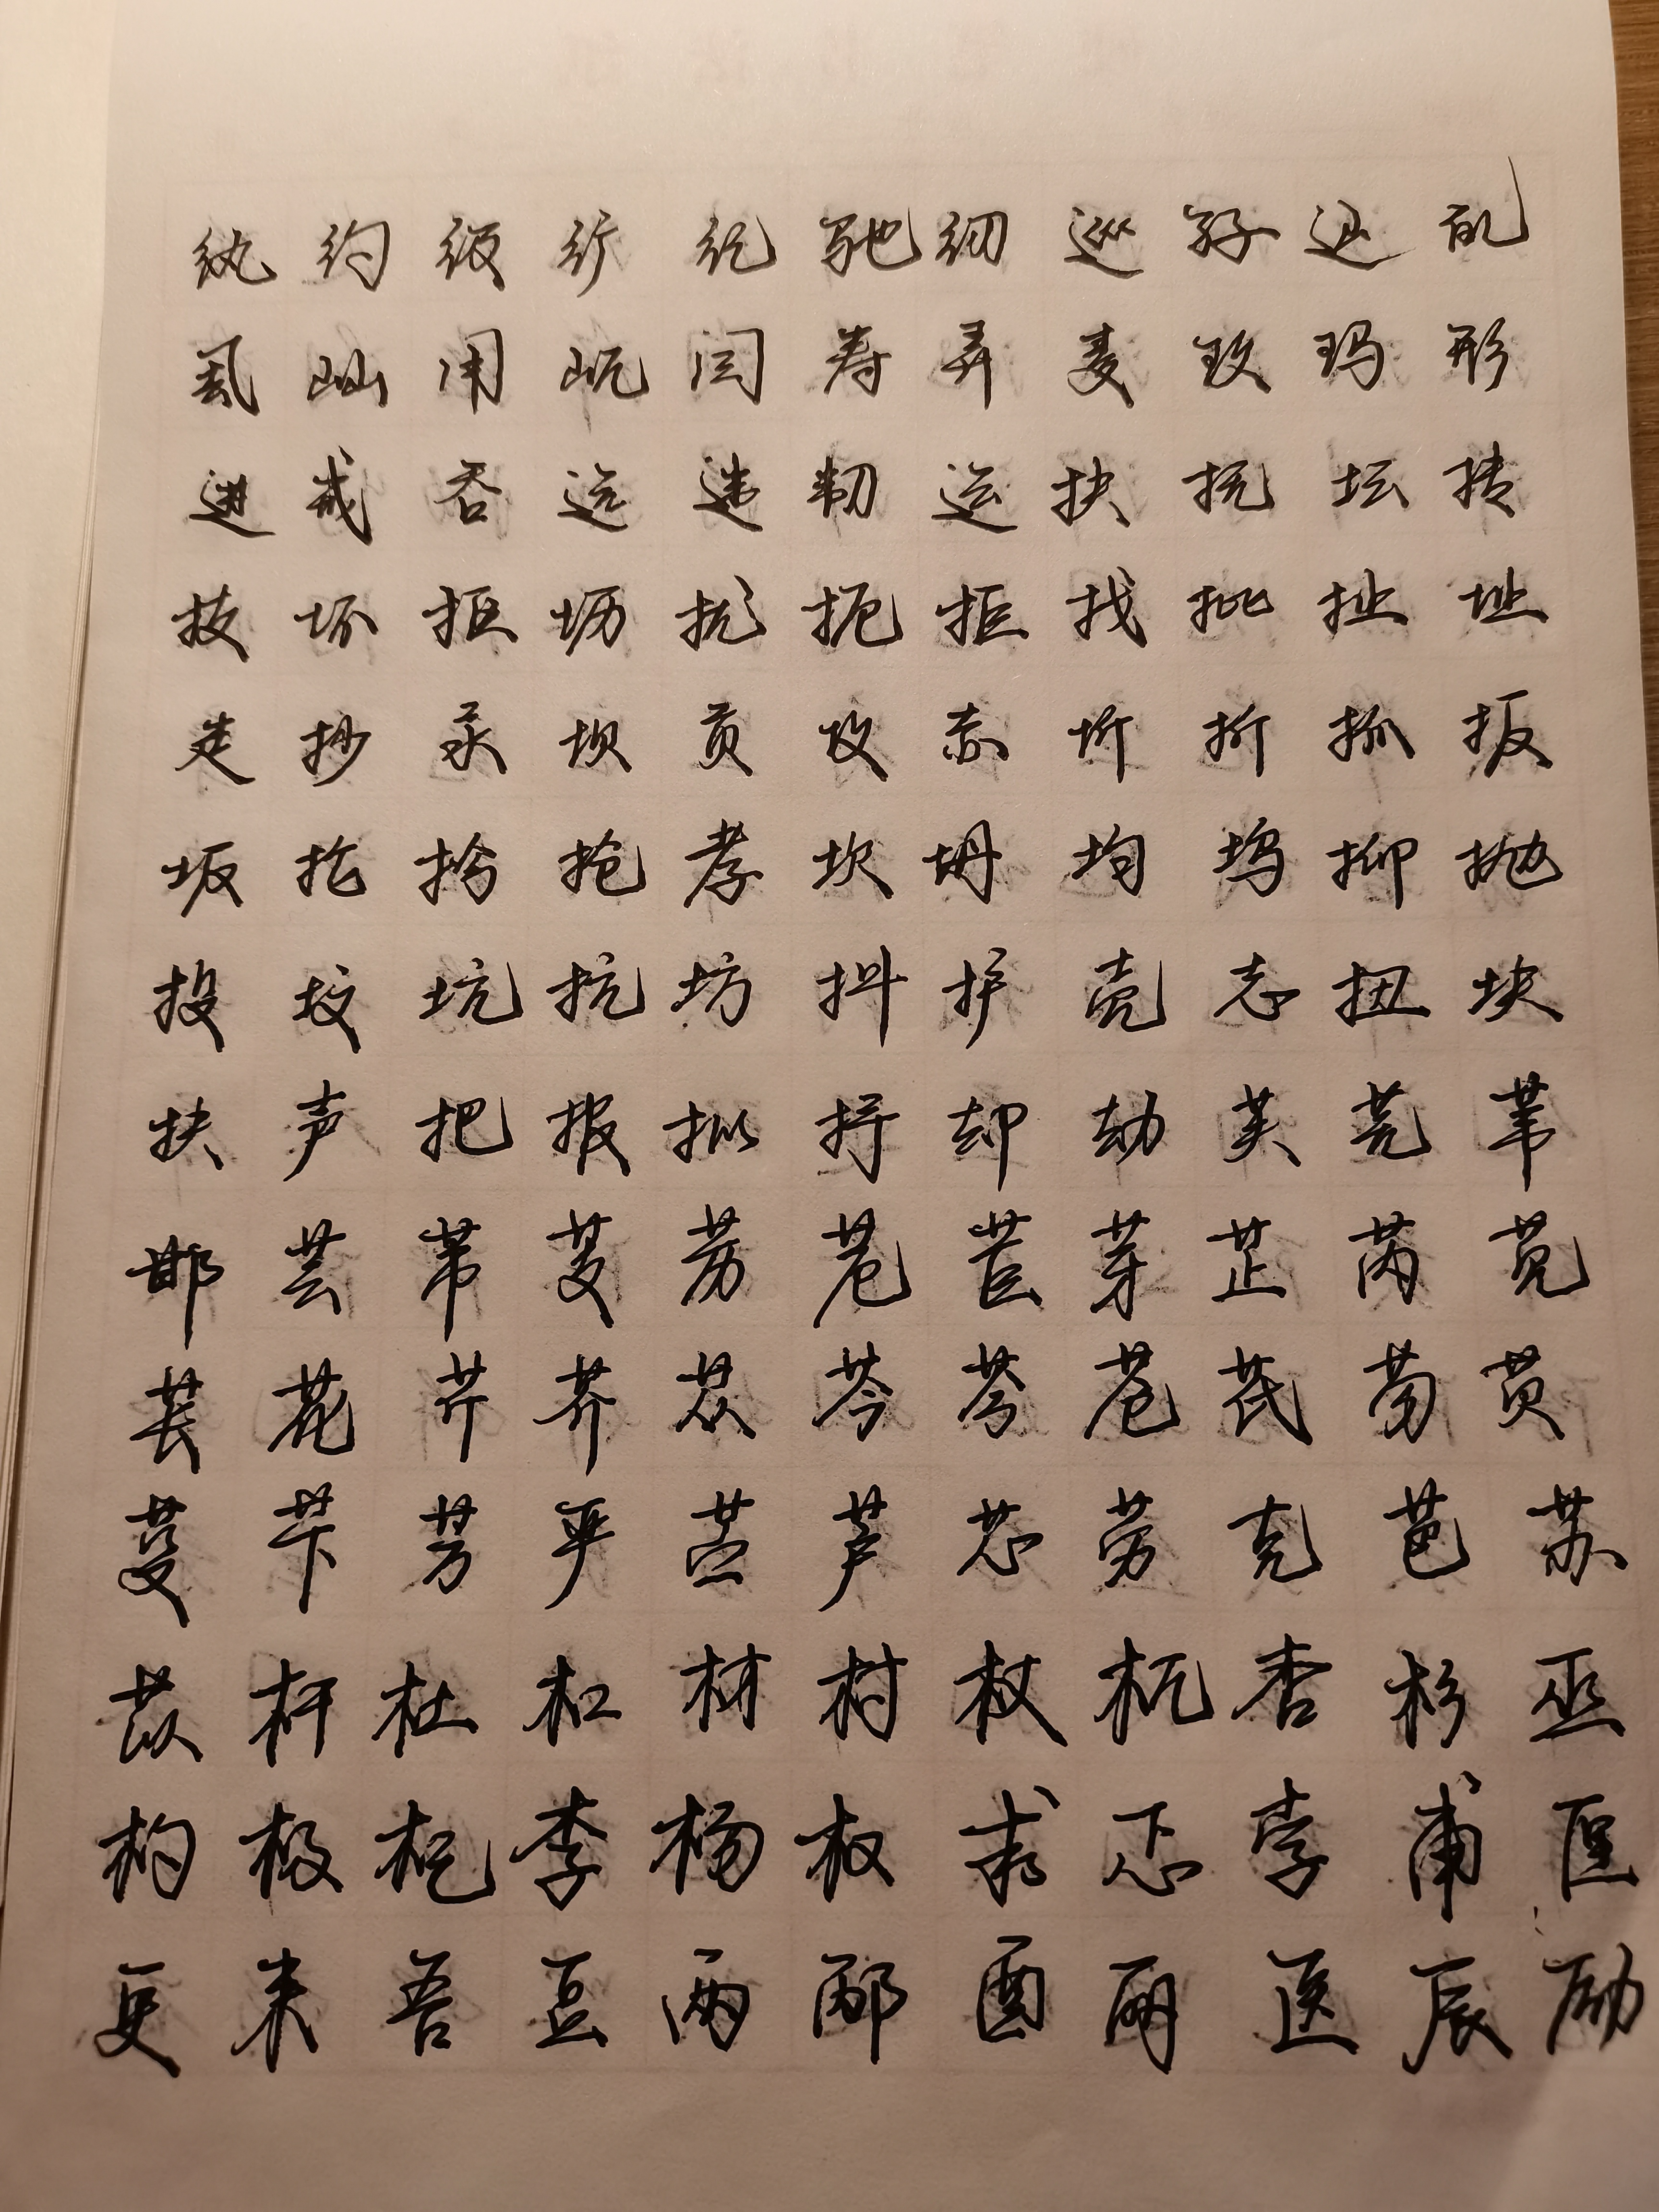 纨约级纩纪驰纫巡孖迅乱
虱屾甩岏闫寿弄麦玫玛形
进戒吞远违韧运扶抚坛抟
技坏抠坜扰扼拒找批扯址
走抄汞坝贡攻赤圻折抓扳
坂抡扮抢孝坎坍均坞抑抛
投坟坑抗坊抖护壳志扭块
抉声把报拟抒却劫芙芫苇
邯芸芾芰苈苊苣芽芷芮苋
芼花芹芥苁芩芬苍芪芴芡
芟苄芳严苎芦芯劳克芭苏
苡杆杜杠材村杖杌杏杉巫
杓极杞李杨杈求忑孛甫匣
更束吾豆两邴酉丽医辰励